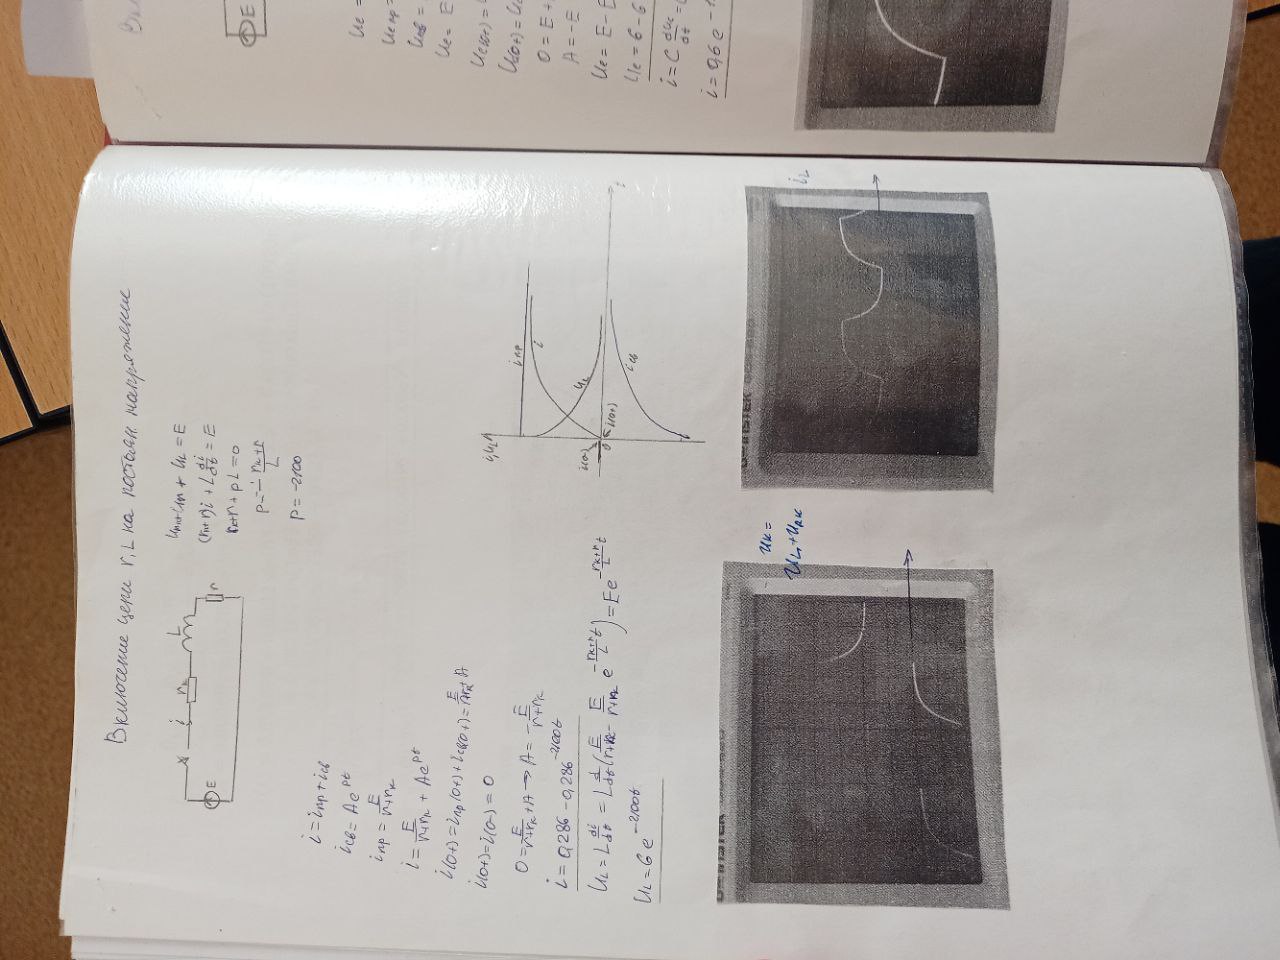 Включение цепи r, L на постоян напряжение
i rк L
E
r
+ UL = E
(rк+r)i + L di/dt = E
rк+r + pL = 0
p = - rк+r/L
p = -2100
i = iпр + iсв
iсв = Ae^pt
iпр = E/r+rк
i = E/r+rк + Ae^pt
i(0+) = iпр(0+) + iсв(0+) = + A
i(0+) = i(0-) = 0
0 = E/r+rк + A → A = - E/r+rк
i = 0,286 - 0,286^-2100t
UL = L di/dt = L d/dt (E/r+rк - E/r+rк e^-rк+r/L t) = Ee^-rк+r/L t
UL = 6 e^-2100t
i, UL
iпр
i
UL
i(0-)
0
i(0+)
t
iсв
Uк =
UL + Urк
iL
E
Uc =
Uc пр =
Uc = E
Uc(0+) =
0 = E +
A = -E
Uc = E - E
Uc = 6 - 6
i = C duc/dt =
i = 0,6 e^-1